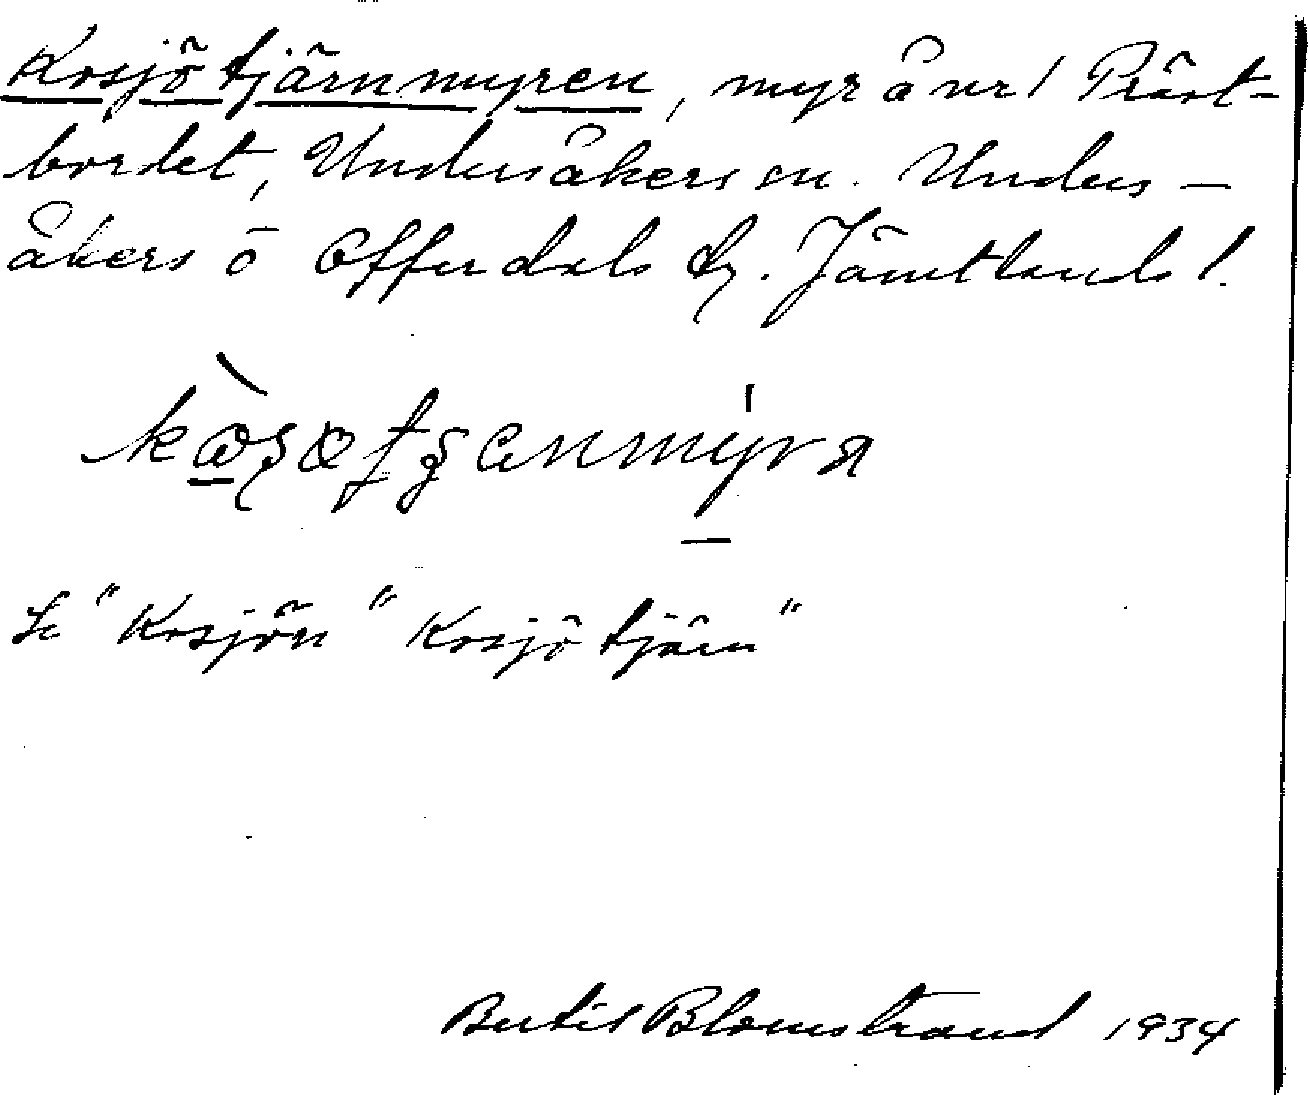 Kosjötjärnmyren, myr å nr 1 Präst-
bordet, Undersåkers sn. Unders-
åkers o Offerdals tg. Jämtlands l.
Se "Kosjön" Kosjötjärn"
Bertil Blomstrand 1934